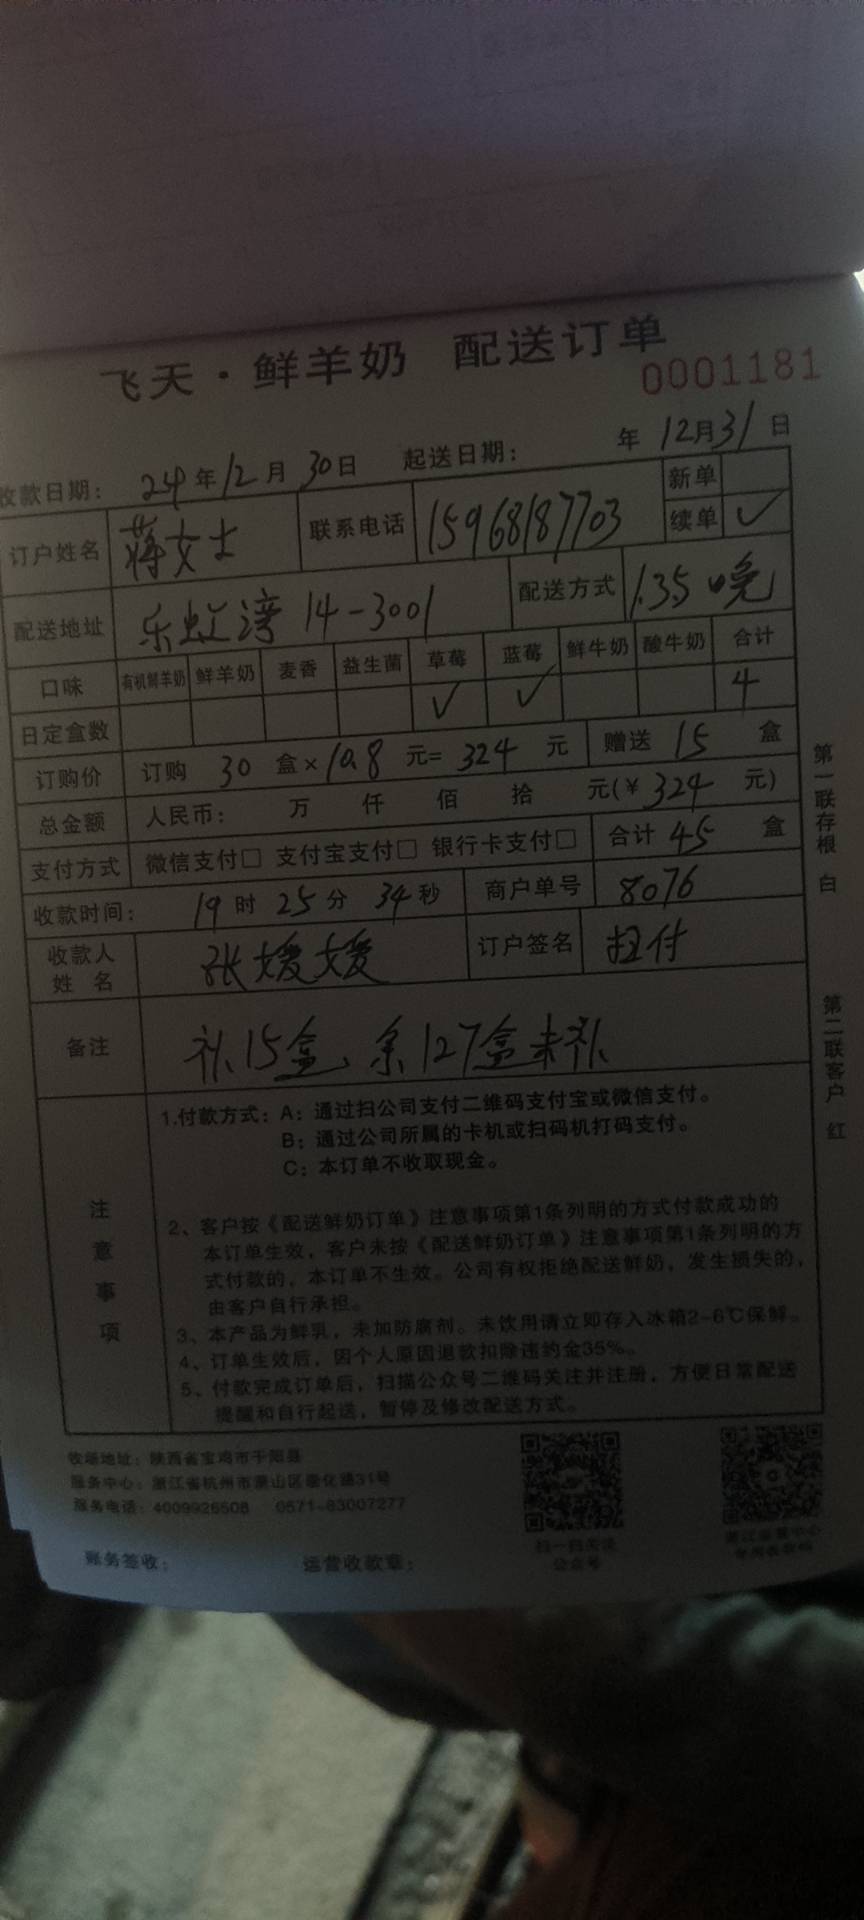 飞天·鲜羊奶 配送订单
0001181
收款日期： 24年12月30日 起送日期： 年12月31日
订户姓名 蒋女士 联系电话 15968187703 新单
续单 ✓
配送地址 乐虹湾 14-3001 配送方式 1.35晚
口味 有机鲜羊奶 鲜羊奶 麦香 益生菌 草莓 蓝莓 鲜牛奶 酸牛奶 合计
日定盒数 ✓ ✓ 4
订购价 订购 30 盒×10.8 元=324 元 赠送 15 盒
总金额 人民币： 万 仟 佰 拾 元(￥324 元)
支付方式 微信支付□ 支付宝支付□ 银行卡支付□ 合计 45 盒
收款时间： 19时25分34秒 商户单号 8076
收款人姓名 张媛媛 订户签名 扫付
备注 补15盒、余127盒未补
注意事项
1.付款方式：A：通过扫公司支付二维码支付宝或微信支付。
B：通过公司所属的卡机或扫码机打码支付。
C：本订单不收取现金。
2、客户按《配送鲜奶订单》注意事项第1条列明的方式付款成功的
本订单生效，客户未按《配送鲜奶订单》注意事项第1条列明的方
式付款的，本订单不生效。公司有权拒绝配送鲜奶，发生损失的，
由客户自行承担。
3、本产品为鲜乳，未加防腐剂。未饮用请立即存入冰箱2-6℃保鲜。
4、订单生效后，因个人原因退款扣除违约金35%。
5、付款完成订单后，扫描公众号二维码关注并注册，方便日常配送
提醒和自行起送，暂停及修改配送方式。
第一联存根 白
第二联客户 红
牧场地址：陕西省宝鸡市千阳县
服务中心：浙江省杭州市萧山区德化路31号
服务电话：4009926508 0571-83007277
扫一扫关注
公众号
账务签收： 运营收款章：